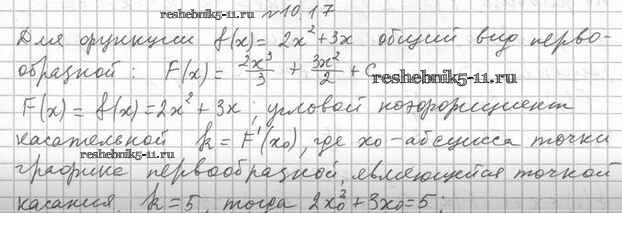 reshebnik5-11.ru №10.17
Для функции f(x) = 2x² + 3x общий вид перво-
образной: F(x) = 2x³/3 + 3x²/2 + C
reshebnik5-11.ru
F(x) = f(x) = 2x² + 3x; угловой коэффициент
касательной k = F'(x₀), где x₀ - абсцисса точки
reshebnik5-11.ru
графика первообразной, являющейся точкой
касания. k = 5, тогда 2x₀² + 3x₀ = 5;